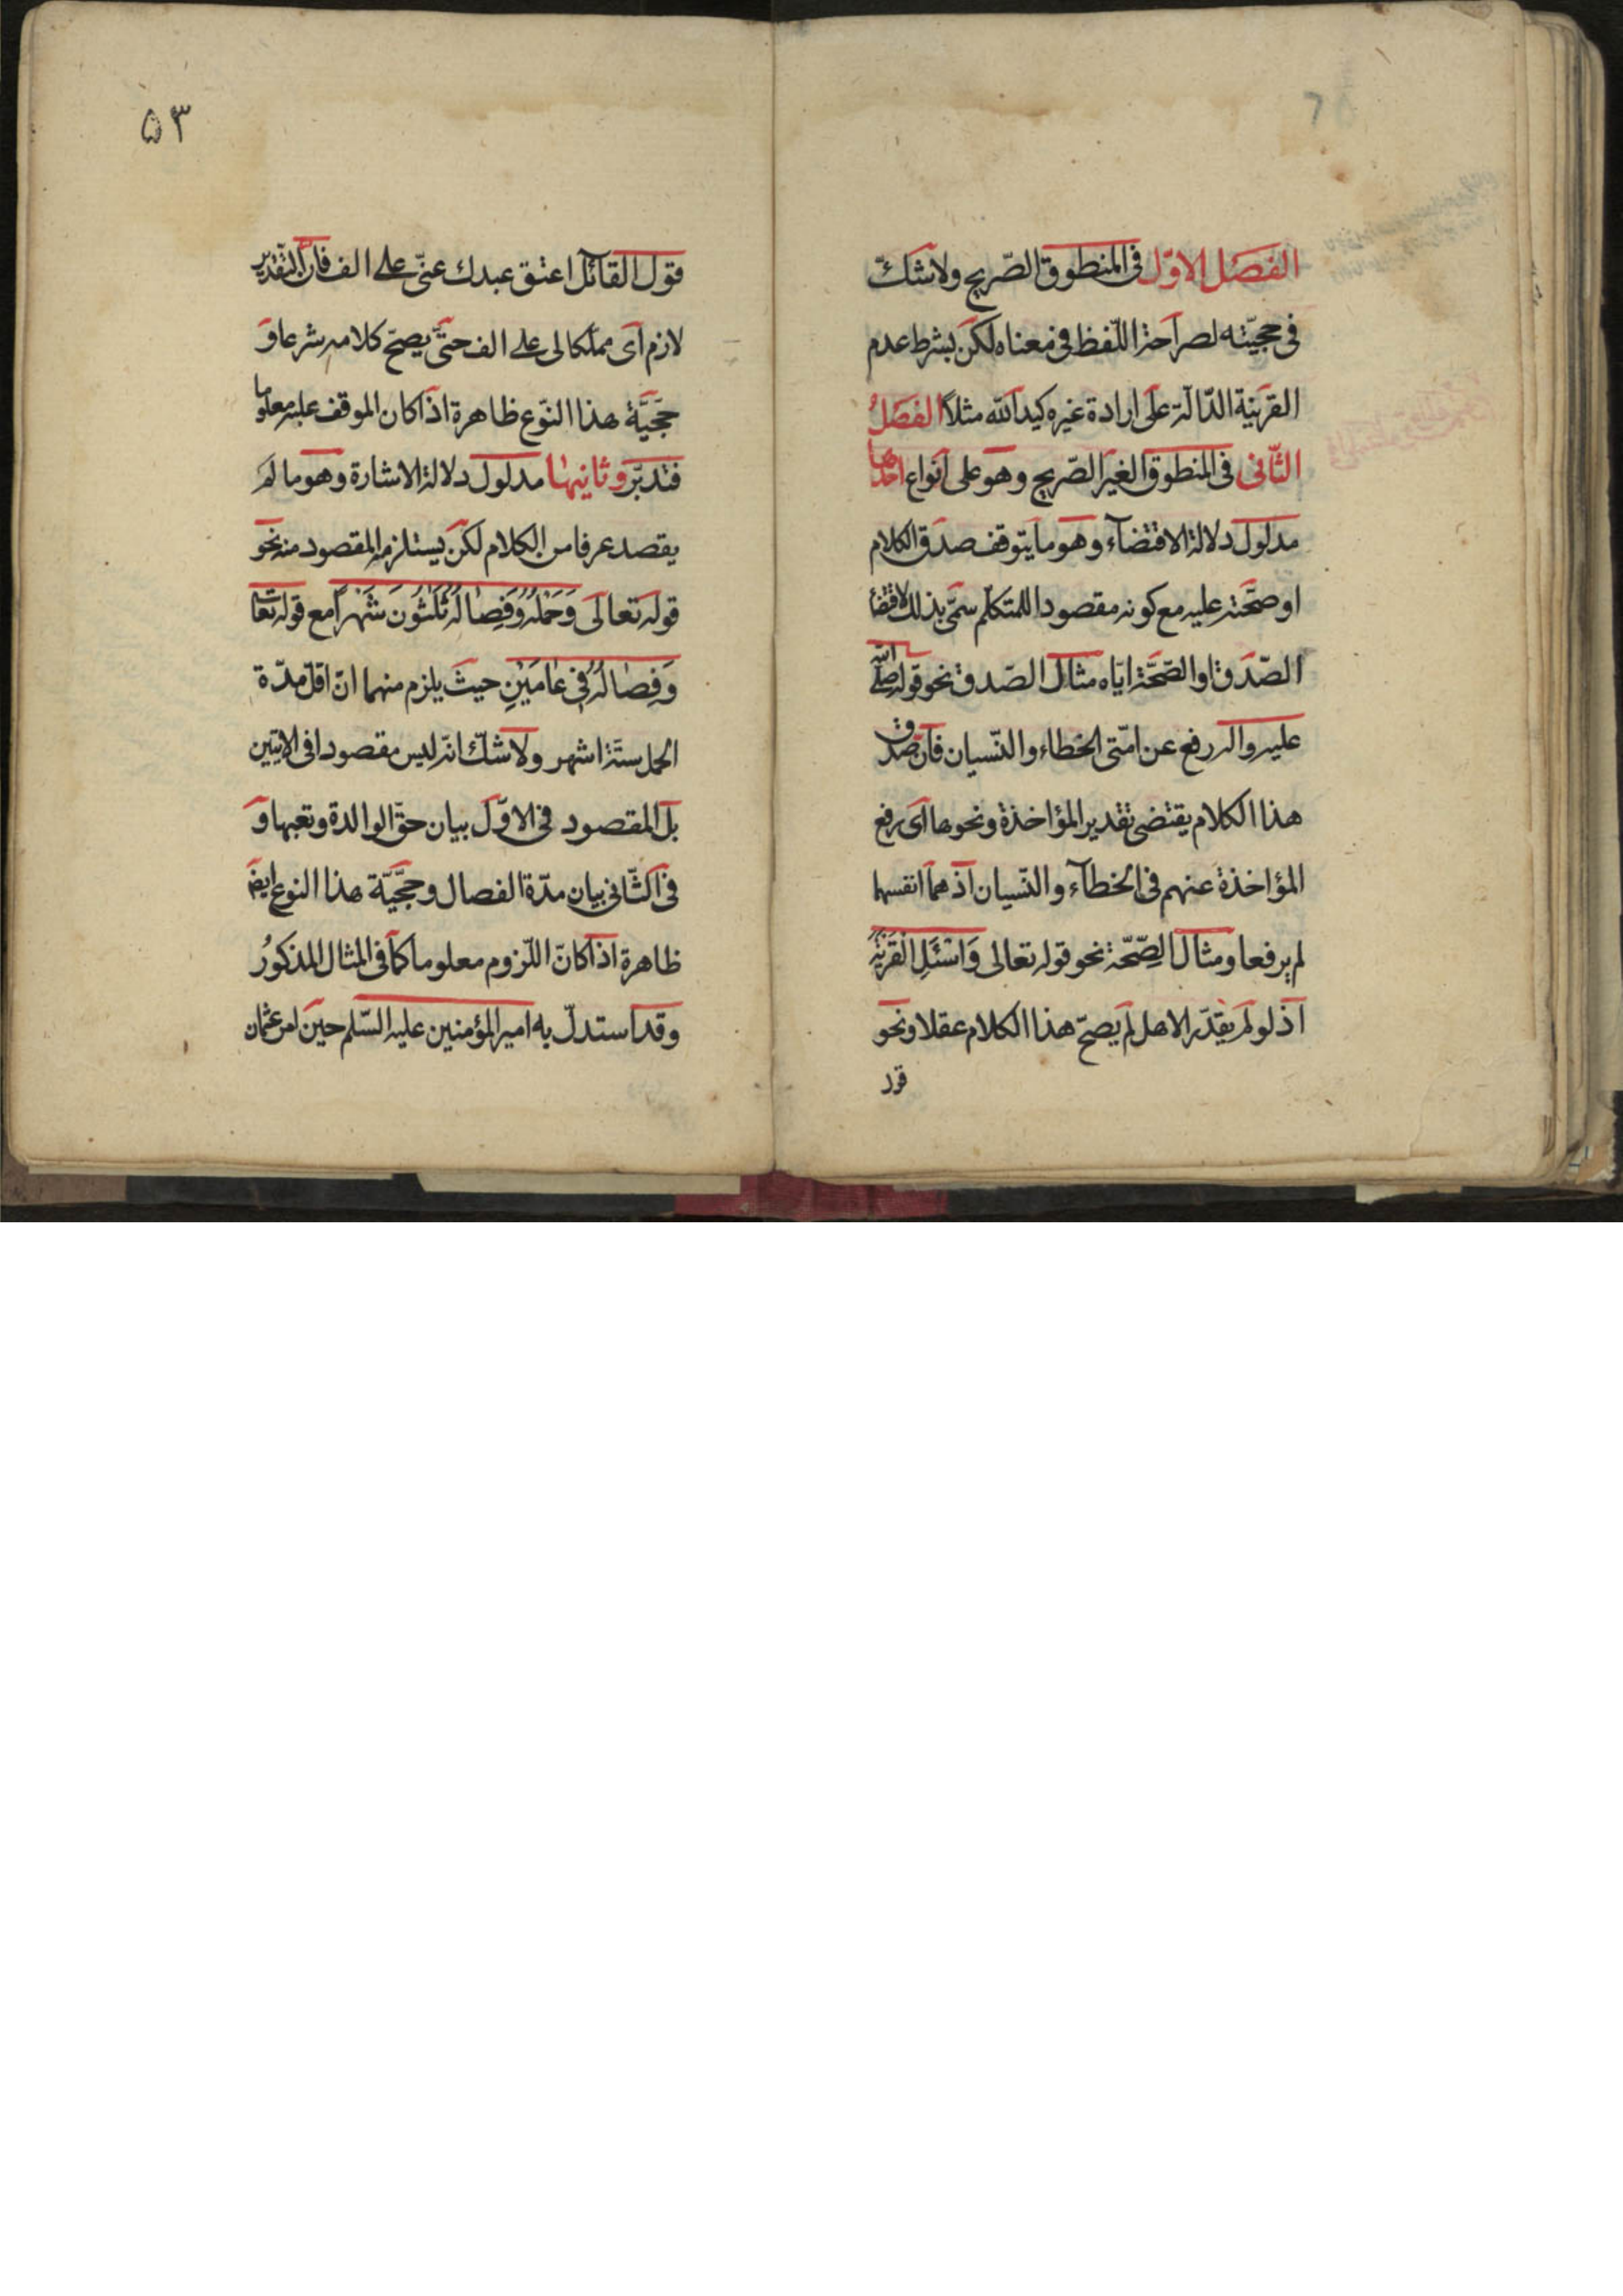 الفصل الاوّل فى المنطوق الصّريح ولا شكّ
فى حجيّته لصراحة اللّفظ فى معناه لكن بشرط عدم
القرينة الدّالّة على ارادة غيره كيد اللّه مثلاً الفصلُ
الثّانى فى المنطوق الغير الصّريح وهو على انواع احدها
مدلول دلالة الاقتضآء وهو ما يتوقف صدق الكلام
او صحّته عليه مع كونه مقصودا للمتكلّم سمّى بذلك لاقتضا
الصّدق او الصّحّة ايّاه مثال الصّدق نحو قوله صلى اللّه
عليه واله رفع عن امّتى الخطاء والنّسيان فانّ صدق
هذا الكلام يقتضى تقدير المؤاخذة ونحوها اى رفع
المؤاخذة عنهم فى الخطآء والنّسيان اذ هما انفسهما
لم يرفعا ومثال الصّحّة نحو قوله تعالى وَاسْئَلِ الْقَرْيَةَ
اذ لو لم يقدّر الاهل لم يصحّ هذا الكلام عقلا ونحو
٥٣
قول القائل اعتق عبدك عنّى على الف فانّ التّقدير
لازم اى مملّكا لى على الف حتّى يصحّ كلامه شرعا و
حجّيّة هذا النّوع ظاهرة اذا كان الموقف عليه معلوما
فتدبّر وثانيها مدلول دلالة الاشارة وهو ما لم
يقصد عرفا من الكلام لكن يستلزمه المقصود منه نحو
قوله تعالى وَحَمْلُهُ وَفِصَالُهُ ثَلٰثُونَ شَهْرًا مع قوله تعالى
وَفِصَالُهُ فِى عَامَيْنِ حيث يلزم منهما انّ اقلّ مدّة
الحمل ستّة اشهر ولا شكّ انّه ليس مقصودا فى الايتين
بل المقصود فى الاوّل بيان حقّ الوالدة وتعبها و
فى الثّانى بيان مدّة الفصال وحجّيّة هذا النوع ايضَ
ظاهرة اذا كان اللّزوم معلوما كما فى المثال المذكورُ
وقد استدلّ به امير المؤمنين عليه السّلم حين امر عثمان